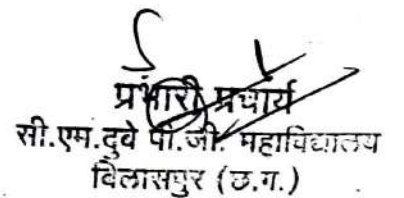 प्रभारी प्राचार्य
सी.एम.दुबे पी.जी. महाविद्यालय
बिलासपुर (छ.ग.)